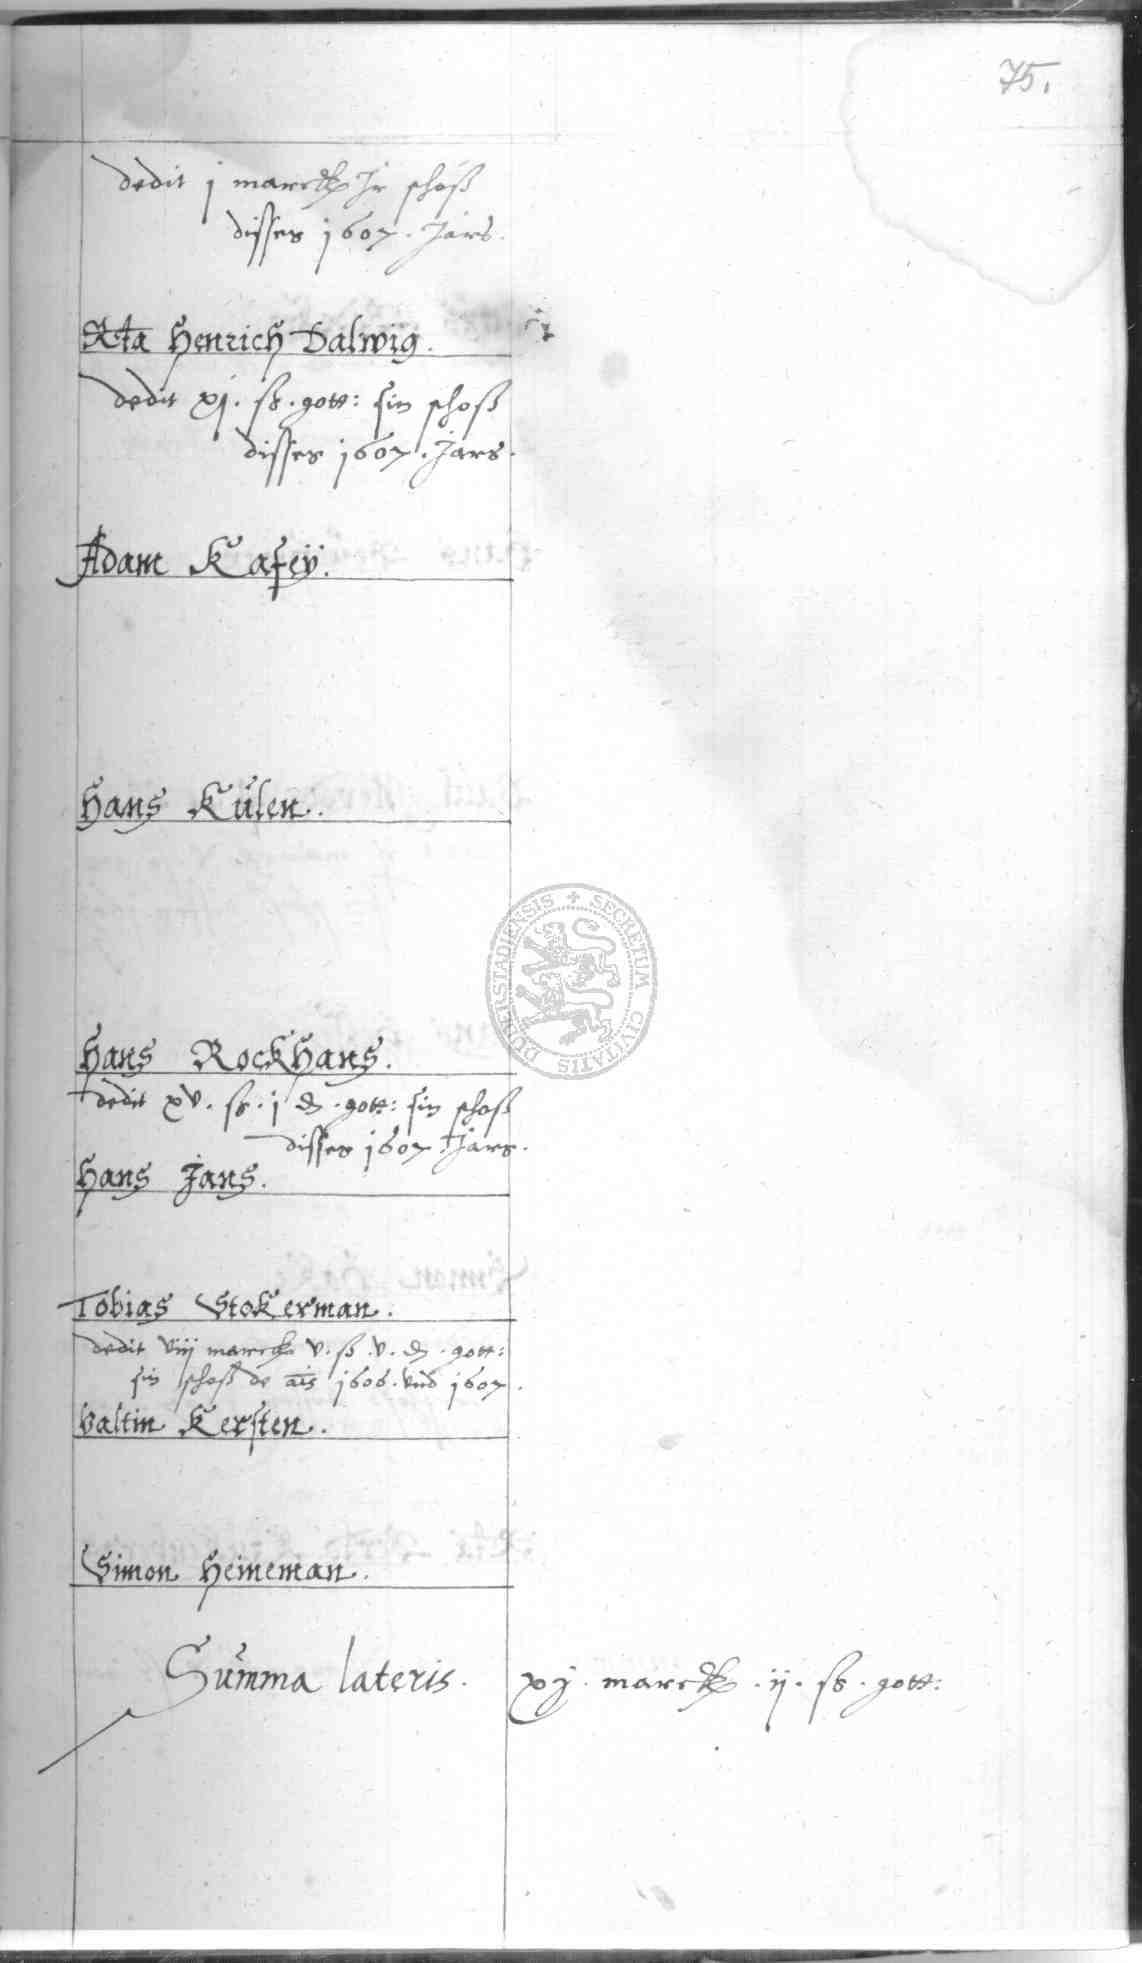 75.
dedit j marck Ir schoß
disses 1607. Jars.
Rta Henrich Dalwig.
dedit xj. ß. gott: sin schoß
disses 1607. Jars.
Adam Kafeÿ.
Hans Külen.
Hans RockHans.
dedit xv. ß. j d. gott: sin schoß
disses 1607. Jars.
Hans Jans.
Tobias Stokerman.
dedit viij marck v. ß. v. d. gott:
sin schoß de ais 1606. vnd 1607.
Valtin Kersten.
Simon Heineman.
Summa lateris. xj. marck. ij. ß. gott:
SECRETUM CIVITATIS DUDERSTADIENSIS